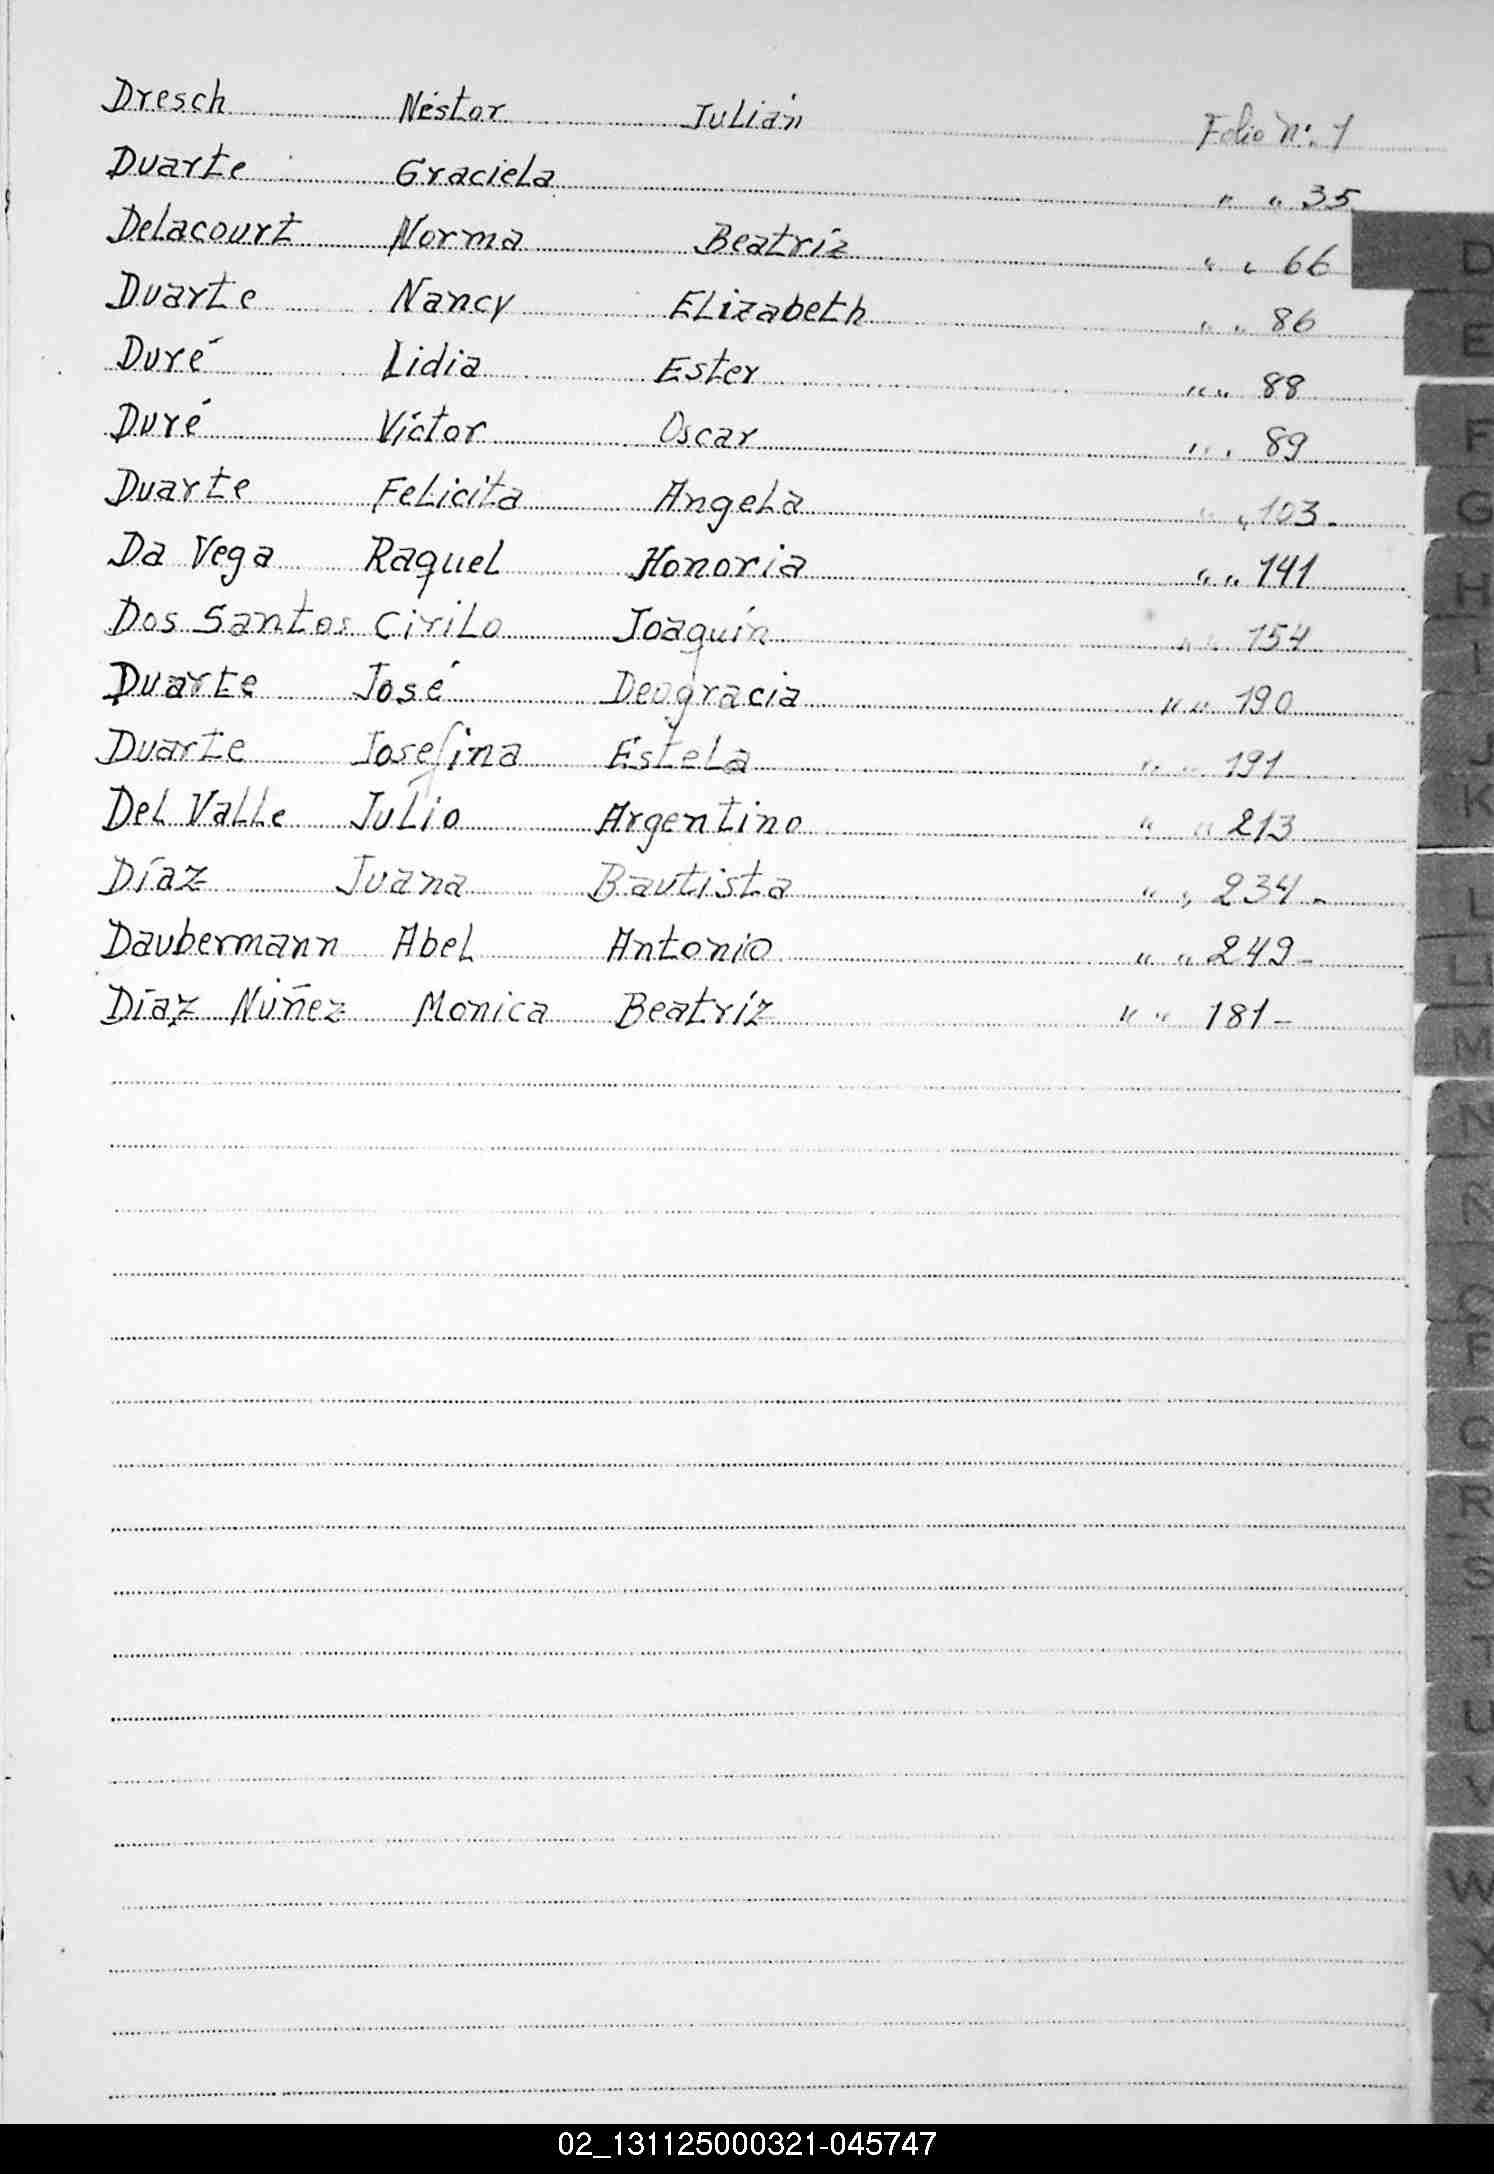 Dresch Néstor Julián Folio n°. 1
Duarte Graciela " " 35
Delacourt Norma Beatríz " " 66
Duarte Nancy Elizabeth " " 86
Duré Lidia Ester " " 88
Duré Víctor Oscar " " 89
Duarte Felicita Angela " " 103-
Da Vega Raquel Honoria " " 141
Dos Santos Cirilo Joaquín " " 154
Duarte José Deogracia " " 190
Duarte Josefina Estela " " 191
Del Valle Julio Argentino " " 213
Díaz Juana Bautista " " 234-
Daubermann Abel Antonio " " 249-
Díaz Núñez Monica Beatríz " " 181-
D
E
F
G
H
I
J
K
L
LL
M
N
Ñ
O
P
Q
R
S
T
U
V
W
X
Y
Z
02_131125000321-045747